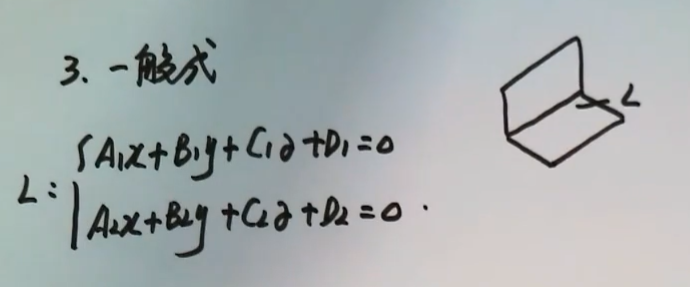 3. 一般式
L: { A₁x+B₁y+C₁z+D₁=0
A₂x+B₂y+C₂z+D₂=0.
L